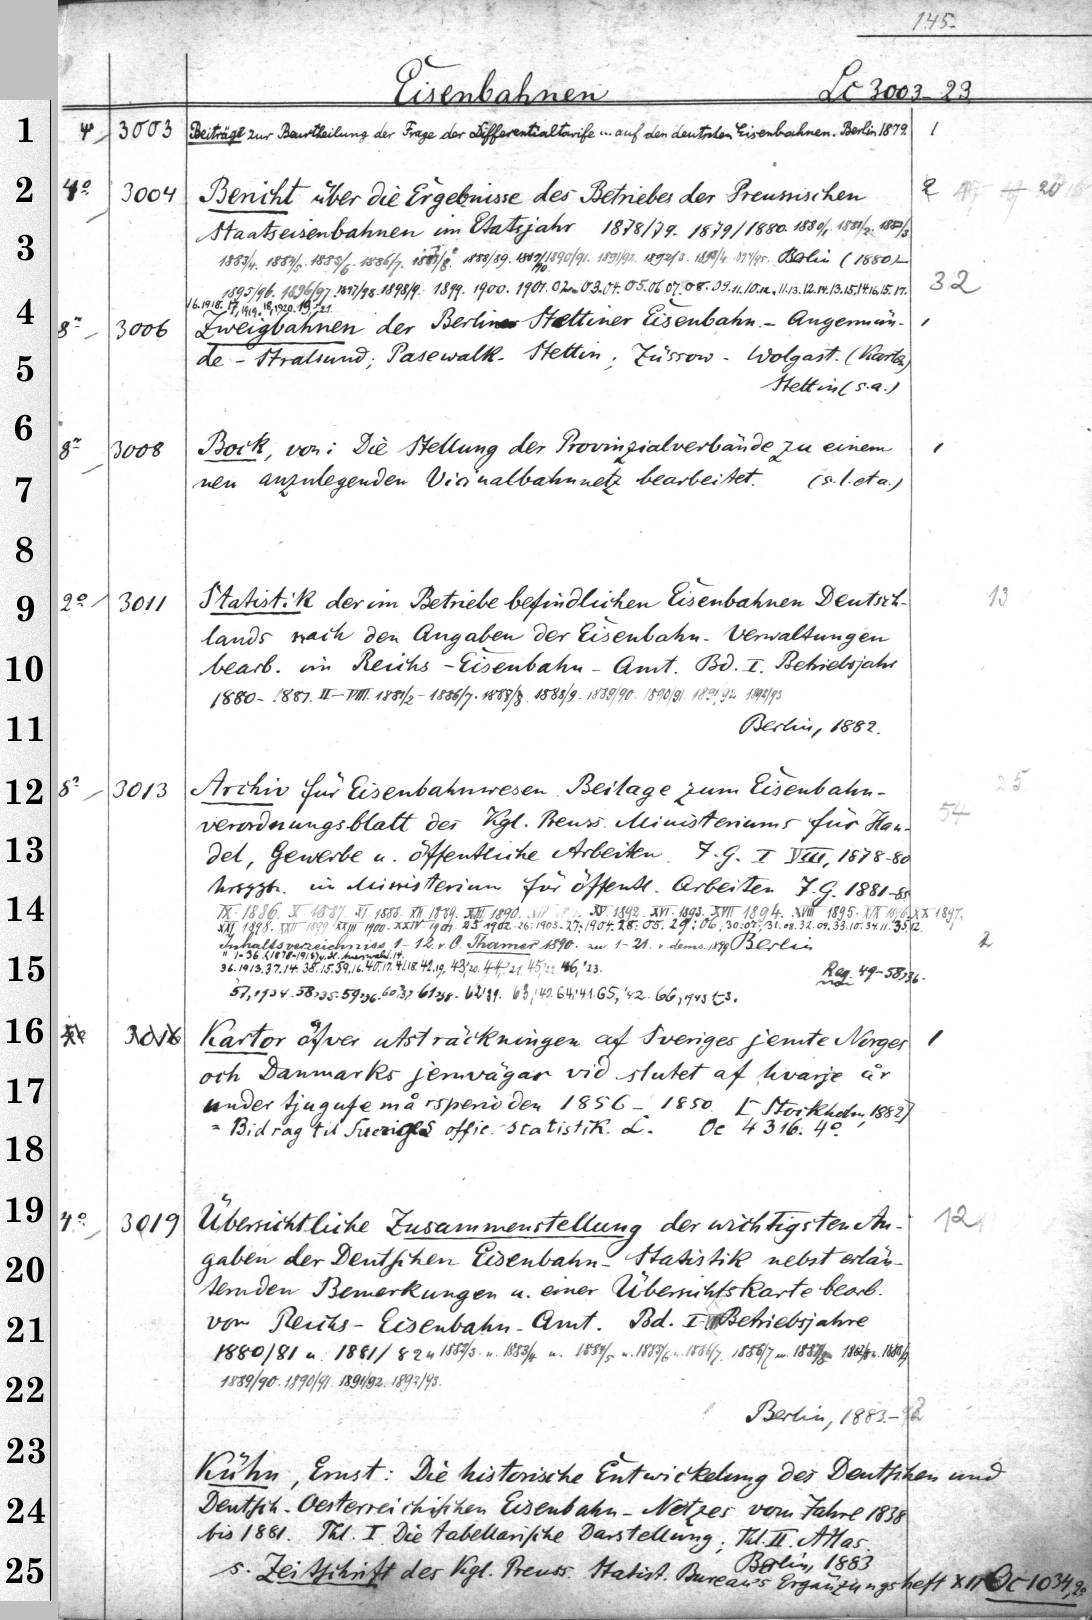 145.
Eisenbahnen Lc 3003-23
1 4° 3003 Beiträge zur Beurtheilung der Frage der Differentialtarife ... auf den deutschen Eisenbahnen. Berlin 1879. 1
2 4° 3004 Bericht über die Ergebnisse des Betriebes der Preussischen 20
3 Staatseisenbahnen im Etatsjahr 1878/79. 1879/1880. 1880/1. 1881/2. 1882/3
1883/4. 1884/5. 1885/6. 1886/7. 1887/8. 1888/89. 1889/90 1890/91. 1891/92. 1892/3. 1893/4. 1894/95. Berlin (1880)-
1895/96. 1896/97. 1897/98. 1898/9. 1899. 1900. 1901. 02. 03. 04. 05. 06. 07. 08. 09. 10. 11. 12. 13. 14. 15. 16. 17. 32
4 8° 3006 Zweigbahnen der Berliner Stettiner Eisenbahn. - Angermün- 1
5 de - Stralsund; Pasewalk - Stettin; Züssow - Wolgast. (Karte)
Stettin (s.a.)
6 8° 3008 Bock, von: Die Stellung der Provinzialverbände zu einem 1
7 neu anzulegenden Vicinalbahnnetz bearbeitet. (s.l. et a.)
8
9 2° 3011 Statistik der im Betriebe befindlichen Eisenbahnen Deutsch- 13
lands nach den Angaben der Eisenbahn-Verwaltungen
10 bearb. im Reichs-Eisenbahn-Amt. Bd. I. Betriebsjahr
1880-1887. II-VIII. 1881/2-1886/7. 1887/8. 1888/9. 1889/90. 1890/91. 1891/92. 1892/93
11 Berlin, 1882.
12 8° 3013 Archiv für Eisenbahnwesen. Beilage zum Eisenbahn- 25
verordnungsblatt des Kgl. Preuss. Ministeriums für Han- 54
13 del, Gewerbe u. öffentliche Arbeiten. J.G. I-VIII, 1878-80
hrsggb. im Ministerium für öffentl. Arbeiten J.G. 1881-85
14 IX. 1886. X. 1887. XI. 1888. XII. 1889. XIII. 1890. XIV. XV. 1892. XVI. 1893. XVII. 1894. XVIII. 1895. XIX. 1896. XX 1897.
XXI 1898. XXII 1899. XXIII 1900. XXIV 1901. 25 1902. 26. 1903. 27. 1904. 28. 05. 29. 06. 30. 07. 31. 08. 32. 09. 33. 10. 34. 11. 35. 12.
Inhaltsverzeichniss 1-12. v. O. Thamer 1890. zu 1-21. v. dems. 1899 Berlin 2
15 36. 1913. 37. 14. 38. 15. 39. 16. 40. 17. 41. 18. 42. 19. 43. 20. 44. 21. 45. 22. 46. 23. Reg. 49-58, 36.
57, 1934. 58, 35. 59, 36. 60, 37. 61, 38. 62, 39. 63, 40. 64, 41. 65, 42. 66, 1943
16 Kartor öfver utsträckningen af Sveriges jemte Norges 1
och Danmarks jernvägar vid slutet af hvarje år
17 under tjugufemårsperioden 1856 - 1850. [Stockholm, 1882]
= Bidrag til Sveriges offic. Statistik. L. Oc 4316. 4°.
18
19 4° 3019 Übersichtliche Zusammenstellung der wichtigsten An- 12
20 gaben der Deutschen Eisenbahn-Statistik nebst erläu-
ternden Bemerkungen u. einer Übersichtskarte bearb.
21 vom Reichs-Eisenbahn-Amt. Bd. I Betriebsjahre
1880/81 u. 1881/82 u. 1882/3. u. 1883/4 u. 1884/5 u. 1885/6 u. 1886/7.
22 1889/90. 1890/91. 1891/92. 1892/93.
Berlin, 1883.-92
23 Kühn, Ernst: Die historische Entwickelung des Deutschen und
24 Deutsch-Oesterreichischen Eisenbahn-Netzes vom Jahre 1838
bis 1881. Thl. I. Die tabellarische Darstellung; Thl. II. Atlas.
Berlin, 1883
25 s. Zeitschrift des Kgl. Preuss. Statist. Bureau's Ergänzungsheft XII Oc 1034, 2°